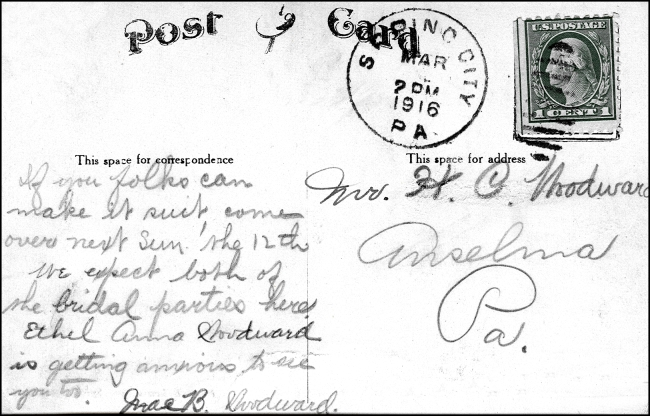 Post Card
SPRING CITY
MAR
2 PM
1916
PA.
U.S. POSTAGE
1 CENT 1
This space for correspondence
This space for address
If you folks can
make it suit come
over next Sun. the 12th
We expect both of
the bridal parties here
Ethel Anna Woodward
is getting anxious to see
you too.
Mae B. Woodward.
Mrs. H. C. Woodward
Anselma
Pa.